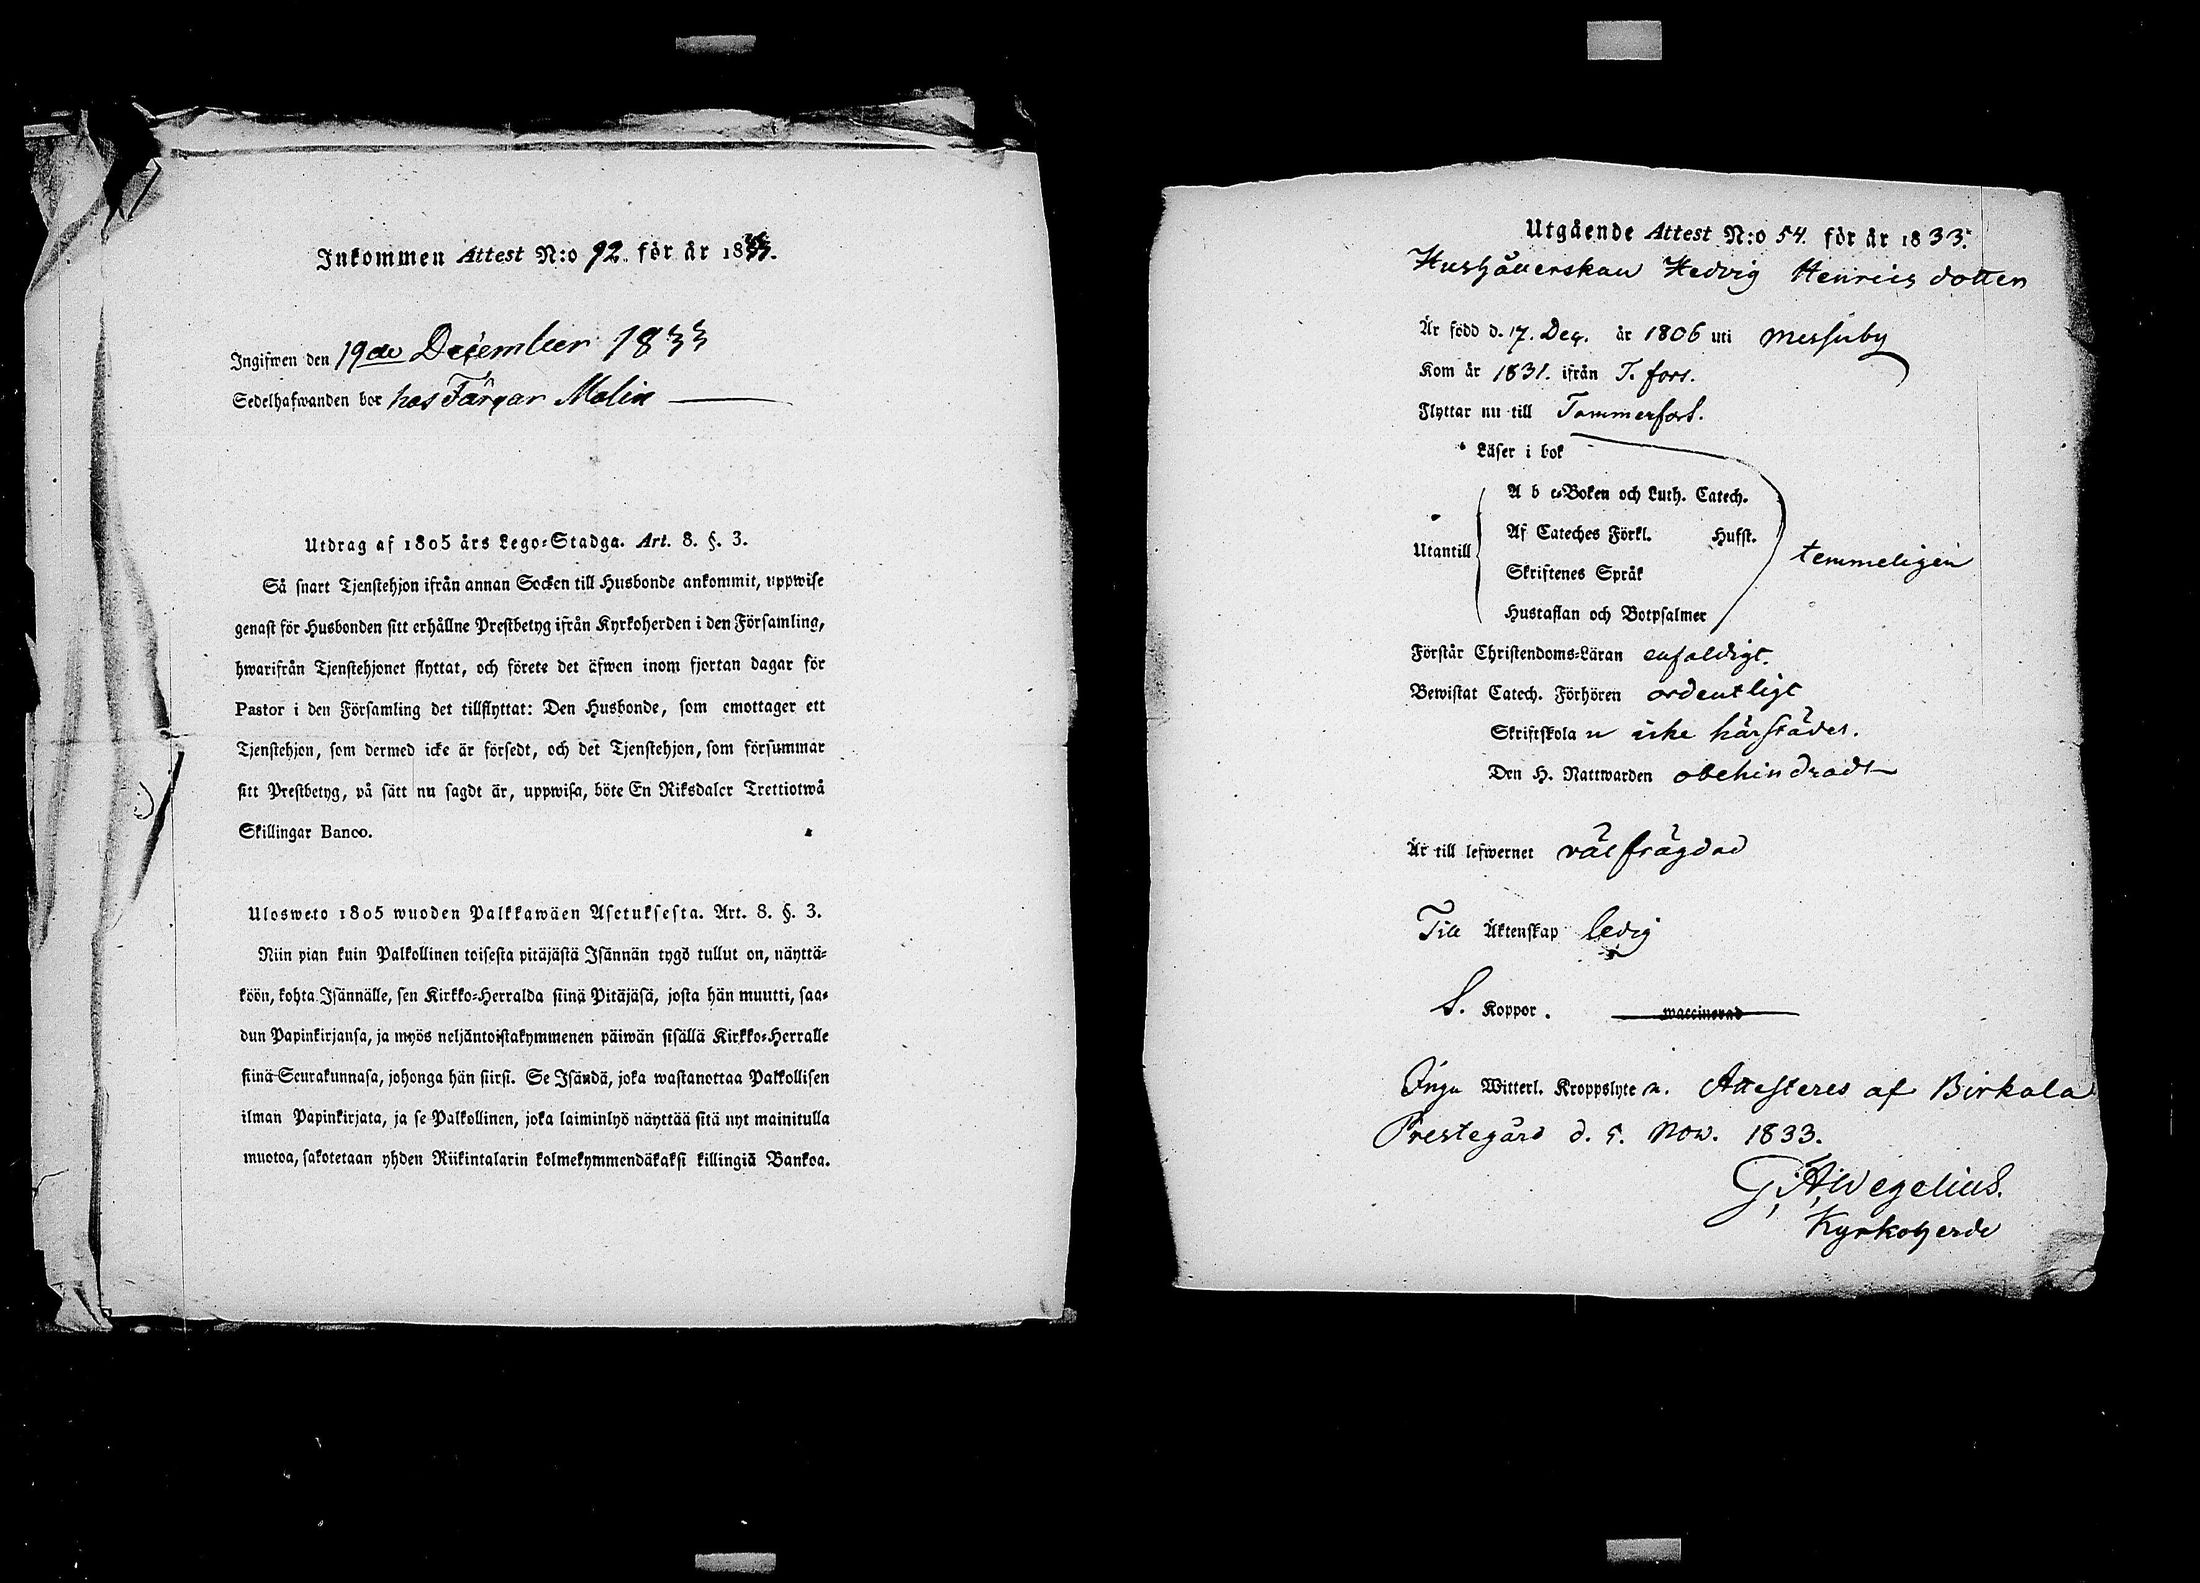 Inkommen Attest N:o 92. för år 1833.
Ingifwen den 19de December 1833
Sedelhafwanden bor hos Färgar Molin
Utdrag af 1805 års Lego-Stadga. Art. 8. §. 3.
Så snart Tjenstehjon ifrån annan Socken till Husbonde ankommit, uppwise
genast för Husbonden sitt erhållne Prestbetyg ifrån Kyrkoherden i den Församling,
hwarifrån Tjenstehjonet flyttat, och förete det äfwen inom fjortan dagar för
Pastor i den Församling det tillflyttat: Den Husbonde, som emottager ett
Tjenstehjon, som dermed icke är försedt, och det Tjenstehjon, som försummar
sitt Prestbetyg, på sätt nu sagdt är, uppwisa, böte En Riksdaler Trettiotwå
Skillingar Banco.
Ulosweto 1805 wuoden Palkkawäen Asetuksesta. Art. 8. §. 3.
Niin pian kuin Palkollinen toisesta pitäjästä Isännän tygö tullut on, näyttä-
köön, kohta Isännälle, sen Kirkko-Herralda siinä Pitäjäsä, josta hän muutti, saa-
dun Papinkirjansa, ja myös neljäntoistakymmenen päiwän sisällä Kirkko-Herralle
siinä Seurakunnasa, johonga hän siirsi. Se Isändä, joka wastanottaa Palkollisen
ilman Papinkirjata, ja se Palkollinen, joka laiminlyö näyttää sitä nyt mainitulla
muotoa, sakotetaan yhden Riikintalarin kolmekymmendäkaksi killingiä Bankoa.
Utgående Attest N:o 54. för år 1833.
Hushållerskan Hedvig Henricsdotter
Är född d. 17. Dec. år 1806 uti Messuby
Kom år 1831. ifrån T. fors.
Flyttar nu till Tammerfors.
Läser i bok
A b c-Boken och Luth. Catech.
Af Cateches Förkl. Hufst.
Utantill
Skriftenes Språk
temmeligen
Hustaflan och Botpsalmer
Förstår Christendoms-Läran enfaldigt.
Bewistat Catech. Förhören ordentligt
Skriftskolan icke härstädes.
Den H. Nattwarden obehindradt
Är till lefwernet välfrägdad
Till Äktenskap ledig
S. Koppor. waccinerad
Inga Witterl. Kroppslyten. Attesteres af Birkala
Prestegård d. 5. Nov. 1833.
G. A. Wegelius.
Kyrkoherde